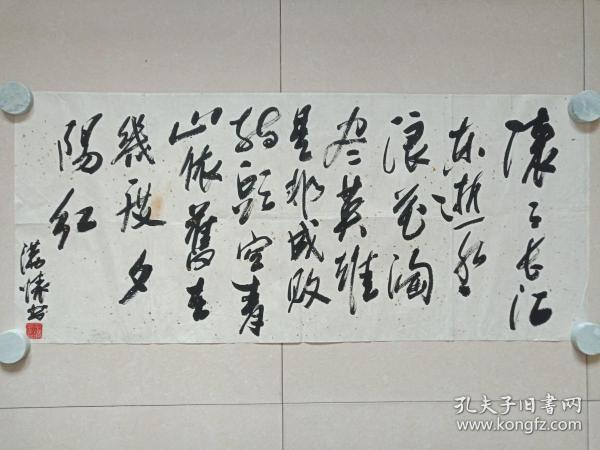 滚滚长江
东逝水
浪花淘
尽英雄
是非成败
转头空青
山依舊在
幾度夕
陽红
孔夫子旧書网
www.kongfz.com